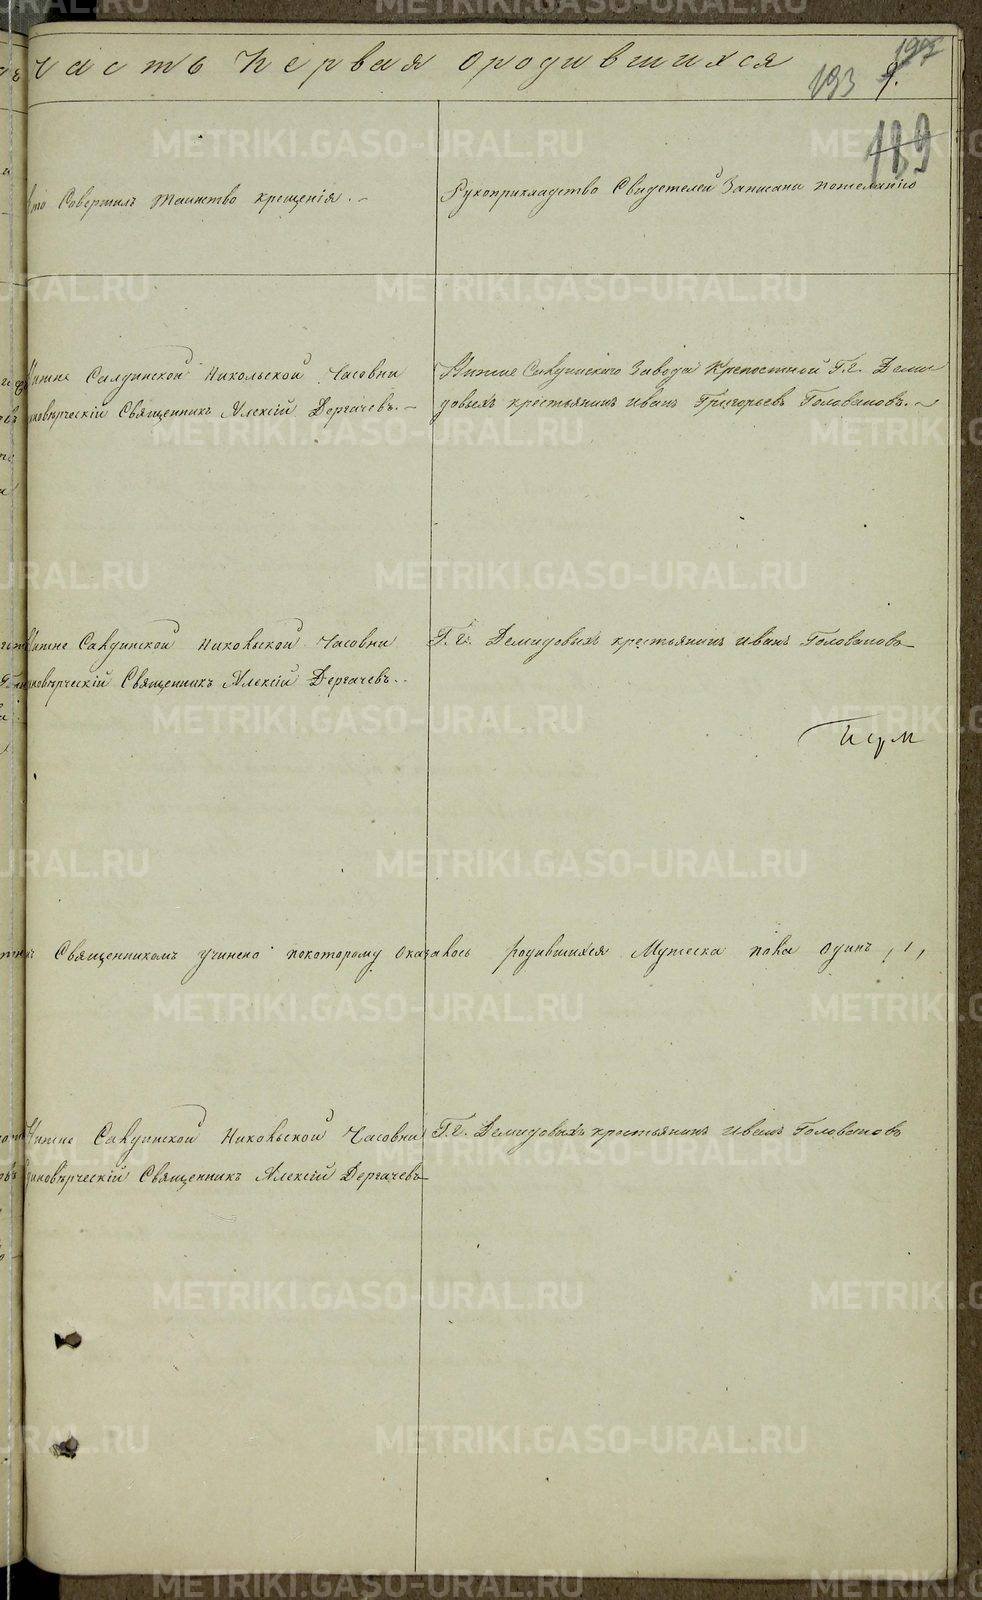 Часть первая о родившихся
193
189
Кто Совершилъ таинство крещенія.
Рукоприкладство Свидетелей Записана пожеланію
Нижне Салдинской Никольской Часовни
Единоверческій Священникъ Алексій Дергачевъ.
Нижне Салдинскаго Завода Крепостной Г. г. Деми
довыхъ крестьянинъ Иванъ Григорьевъ Головановъ.
Нижне Салдинской Никольской Часовни
Единоверческій Священникъ Алексій Дергачевъ.
Г. г. Демидовыхъ крестьянинъ Иванъ Головановъ
Священникомъ учинено покоторому оказалось родившихся Мужеска пола одинъ, 1,
Нижне Салдинской Никольской Часовни
Единоверческій Священникъ Алексій Дергачевъ
Г. г. Демидовыхъ крестьянинъ Иванъ Головановъ
METRIKI.GASO-URAL.RU